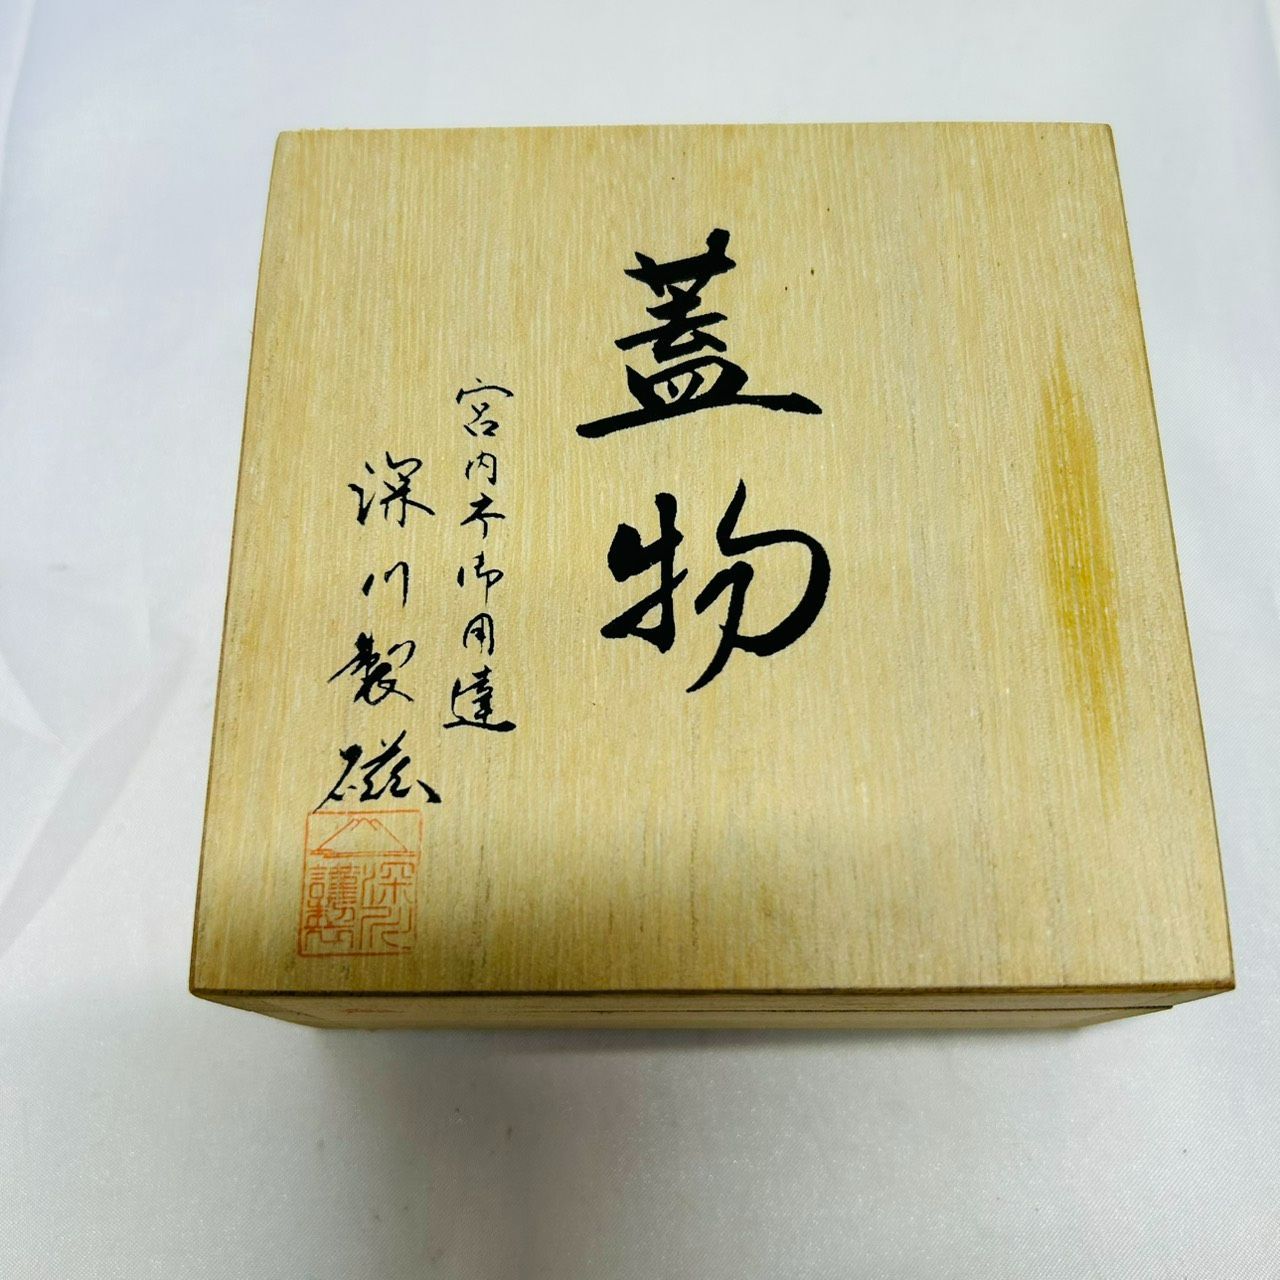 蓋物
宮内庁御用達
深川製磁
深川
謹製